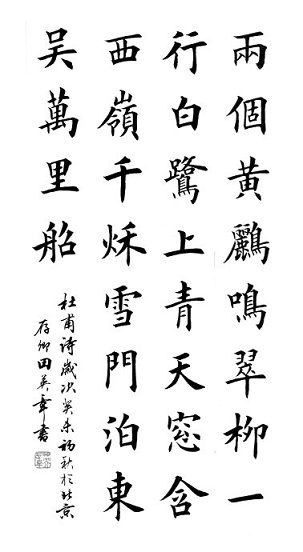 兩個黄鸝鳴翠柳一
行白鷺上青天窓含
西嶺千秌雪門泊東
吳萬里船
杜甫詩歲次癸未初秋於北京
存卿田英章書